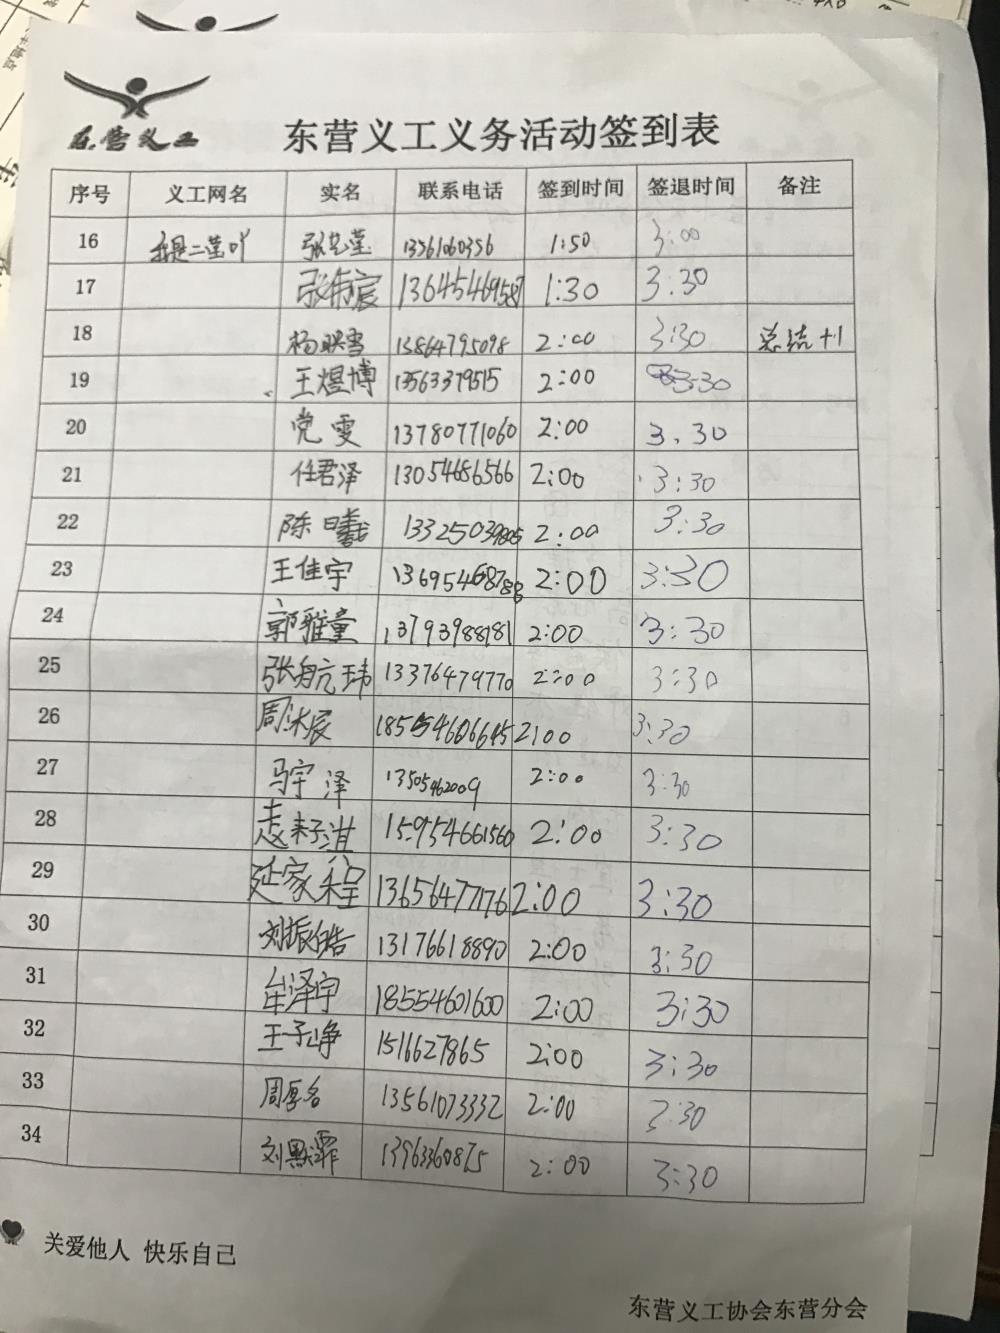 东营义工 东营义工义务活动签到表
序号 义工网名 实名 联系电话 签到时间 签退时间 备注
16 我是二莹吖 张艺莹 1:50 3:00
17 1364546958 1:30 3:30
18 杨映雪 13864795098 2:00 3:30 总流+1
19 王煜博 13563379515 2:00 3:30
20 党雯 13780771060 2:00 3.30
21 任君泽 13054686566 2:00 3:30
22 陈曦 2:00 3:30
23 王佳宇 13695468788 2:00 3:30
24 郭雅童 13793988181 2:00 3:30
25 张航玮 13376479770 2:00 3:30
26 周沐辰 18554606645 2:00 3:30
27 马宇泽 13505462009 2:00 3:30
28 15954661560 2:00 3:30
29 延家程 13656477176 2:00 3:30
30 刘振皓 13176618890 2:00 3:30
31 牟泽宇 18554601600 2:00 3:30
32 王子峥 1516627865 2:00 3:30
33 周厚名 13561073332 2:00 3:30
34 刘默霏 13963360875 2:00 3:30
关爱他人 快乐自己
东营义工协会东营分会